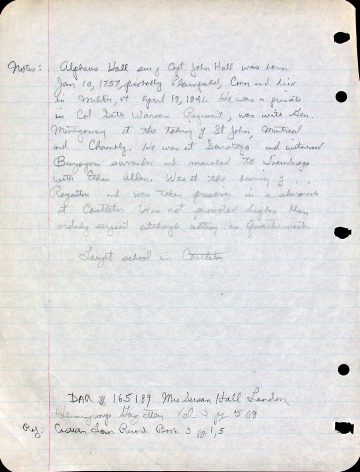 Notes: Alpheus Hall son of Capt John Hall was born
Jan 10, 1757, probably Plainfield, Conn and died
in Milton, Vt April 19, 1841. He was a private
in Col. Seth Warner Regiment, was with Gen.
Montgomery at the taking of St John, Montreal
and Chambly. He was at Saratoga and witnessed
Burgoynes surrender and marched to Ticonderoga
with Ethan Allen. Was at the burning of
Royalton and was taken prisoner in a skirmish
at Castleton. Was not promoted higher than
orderly sergeant although acting as Quartermaster
Taught school in Castleton
DAR # 165189 Mrs Susan Hall Landon
Hemenways Gazetteer Vol 2 pg 508
Ref: Town Record Book 3 pg 1,5